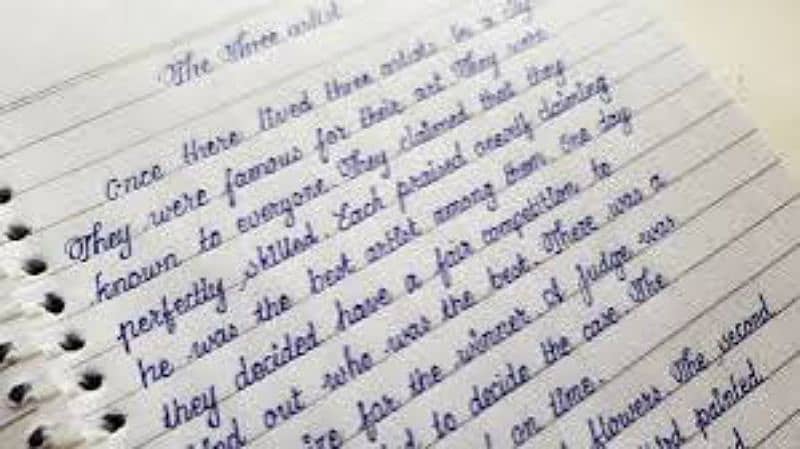 The three artist
Once there lived three artists in a
They were famous for their art They were
known to everyone. They claimed that they
perfectly skilled. Each praised claiming
he was the best artist among them. One day
they decided have a fair competition to
find out who was the best. There was a
for the winner. A judge was
to decide the case. The
on time.
flowers The second
painted